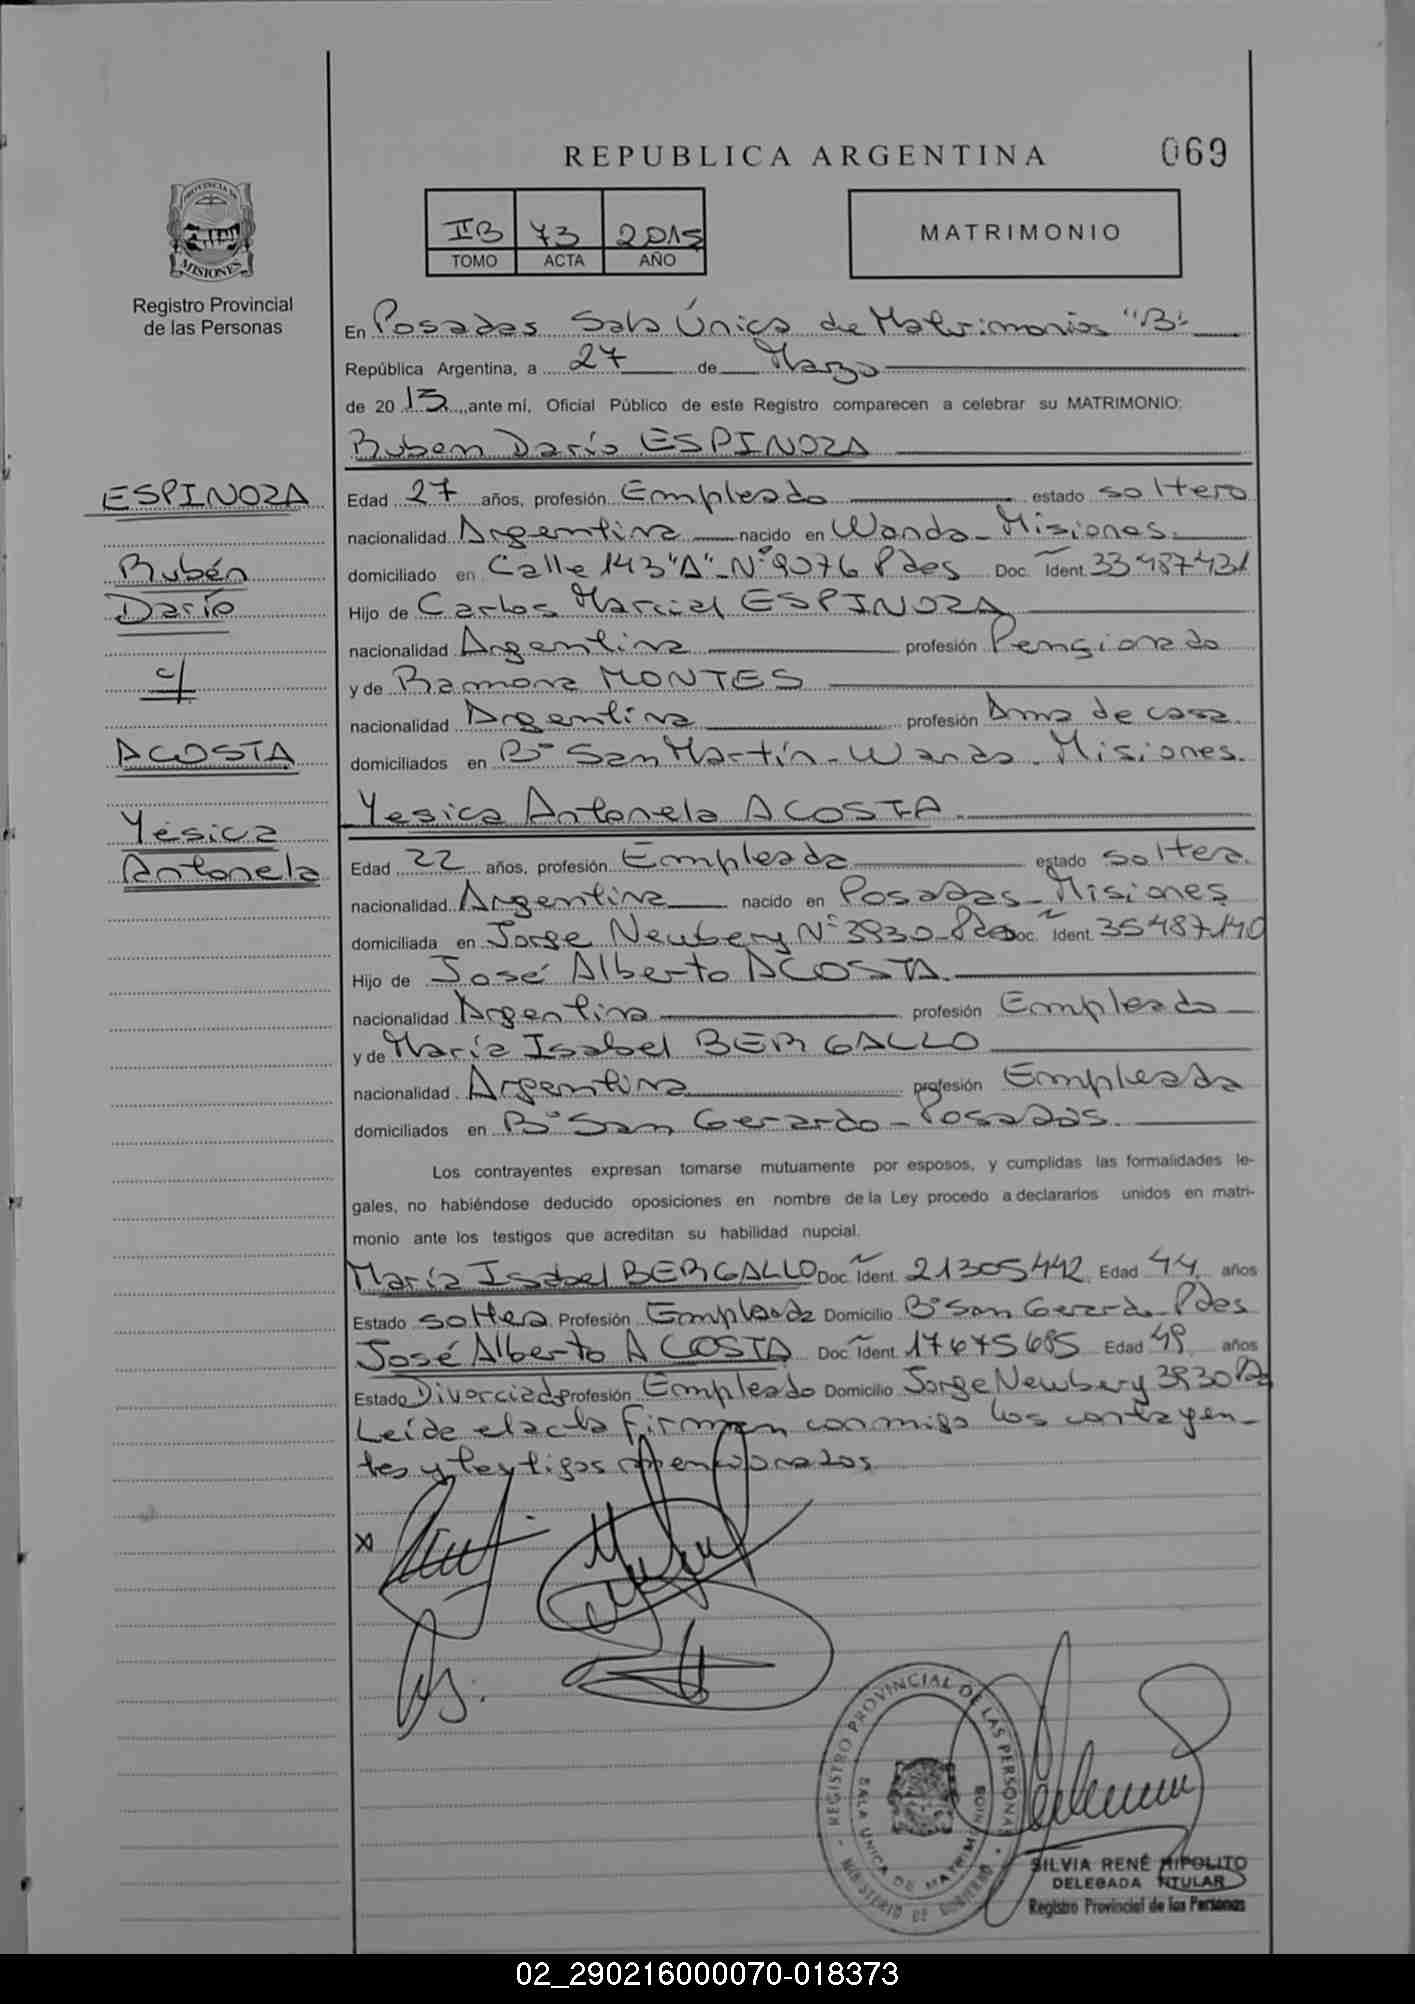 REPUBLICA ARGENTINA
069
PROVINCIA DE
MISIONES
Registro Provincial
de las Personas
IIB 73 2015
TOMO ACTA AÑO
MATRIMONIO
En Posadas Sala Única de Matrimonios "B"
República Argentina, a 27 de Marzo
de 20 15 ante mí, Oficial Público de este Registro comparecen a celebrar su MATRIMONIO:
Ruben Darío ESPINOZA
ESPINOZA
Rubén
Darío
c/
ACOSTA
Yésica
Antonela
Edad 27 años, profesión Empleado estado soltero
nacionalidad Argentina nacido en Wanda - Misiones.
domiciliado en Calle 143 "A" - N° 9076 Pdas Doc. Ident. 33487431
Hijo de Carlos Marcial ESPINOZA
nacionalidad Argentina profesión Pensionado
y de Ramona MONTES
nacionalidad Argentina profesión Ama de casa.
domiciliados en B° San Martín - Wanda - Misiones.
Yesica Antonela ACOSTA
Edad 22 años, profesión Empleada estado soltera.
nacionalidad Argentina nacido en Posadas - Misiones
domiciliada en Jorge Newbery N° 3930 - Pdas Doc. Ident. 35487140
Hijo de José Alberto ACOSTA.
nacionalidad Argentina profesión Empleado
y de María Isabel BERGALLO
nacionalidad Argentina profesión Empleada
domiciliados en B° San Gerardo - Posadas.
Los contrayentes expresan tomarse mutuamente por esposos, y cumplidas las formalidades le-
gales, no habiéndose deducido oposiciones en nombre de la Ley procedo a declararlos unidos en matri-
monio ante los testigos que acreditan su habilidad nupcial.
María Isabel BERGALLO Doc. Ident. 21305442 Edad 44 años
Estado soltera Profesión Empleada Domicilio B° San Gerardo - Pdas
José Alberto ACOSTA Doc. Ident. 17675685 Edad 49 años
Estado Divorciado Profesión Empleado Domicilio Jorge Newbery 3930
Leída el acta firman conmigo los contrayen-
tes y testigos mencionados
REGISTRO PROVINCIAL DE LAS PERSONAS
SALA UNICA DE MATRIMONIOS
MINISTERIO DE GOBIERNO
SILVIA RENÉ HIPOLITO
DELEGADA TITULAR
Registro Provincial de las Personas
02_290216000070-018373